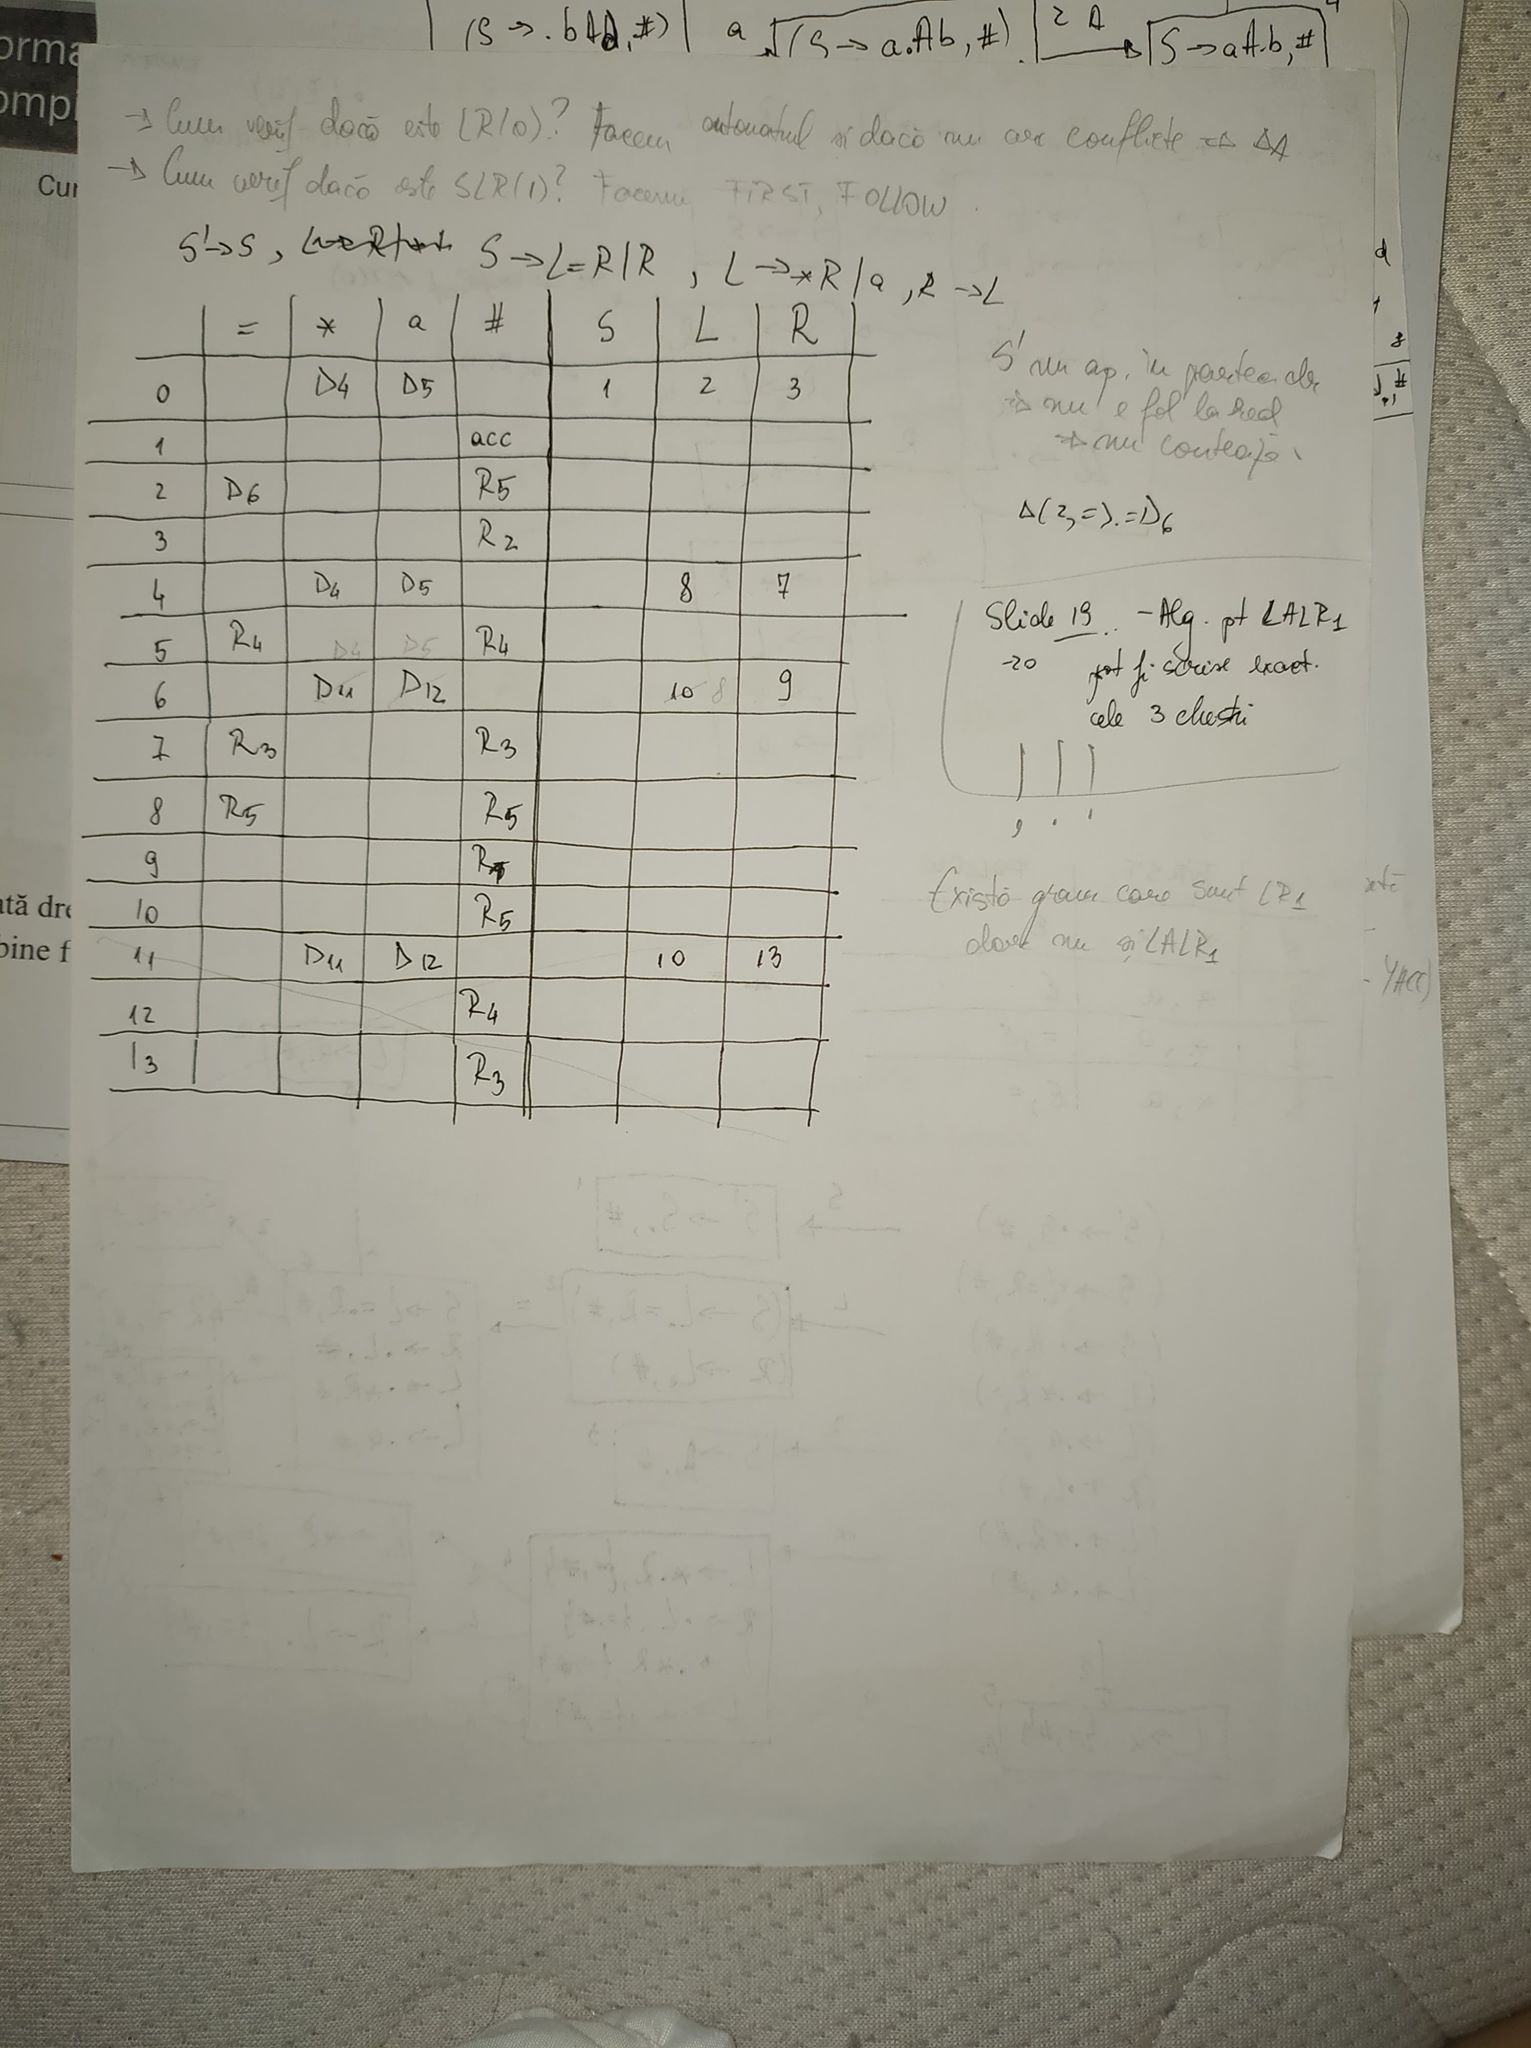 (S → .bAd, #) a (S → a.Ab, #) 2 A S → aA.b, # 4
orma
ompi
Cur
→ Cum verif dacă este LR(0)? Facem automatul și dacă nu are conflicte ⇒ DA
→ Cum verif dacă este SLR(1)? Facem FIRST, FOLLOW
S' → S, S → L=R/R, L → *R/a, R → L
= * a # S L R
0 D4 D5 1 2 3
1 acc
2 D6 R5
3 R2
4 D4 D5 8 7
5 R4 D4 D5 R4
6 D11 D12 10 8 9
7 R3 R3
8 R5 R5
9
10 R5
11 D11 D12 10 13
12 R4
13 R3
S' nu ap. în partea
⇒ nu e fol la red
⇒ nu contează
(2, =) = D6
Slide 19 - Alg. pt LALR1
-20 pot fi scrise exact
cele 3 chestii
Există gram care sunt LR1
dar nu și LALR1
d
8
#
ată dre
bine f
- YACC)